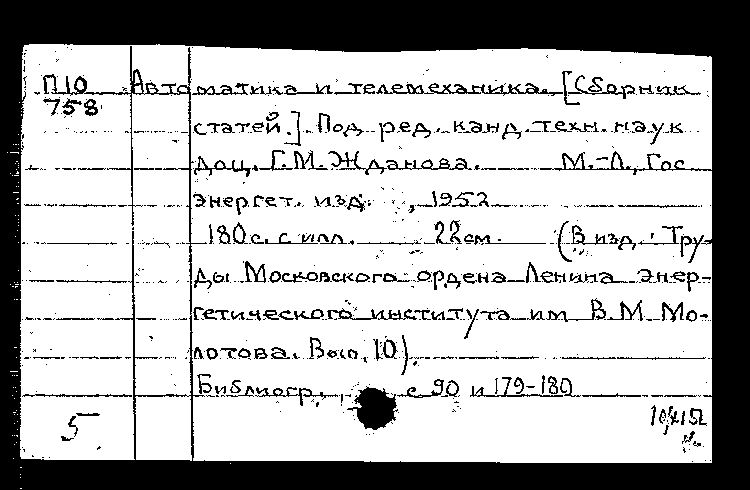 П10 Автоматика и телемеханика. [Сборник
758
статей.] Под ред. канд. техн. наук
доц. Г.М. Жданова. М.-Л., Гос
энергет. изд. , 1952
180 с. с илл. 22 см. (В изд.: Тру-
ды Московского ордена Ленина энер-
гетического института им В.М. Мо-
лотова. Вып. 10).
Библиогр. с 90 и 179-180
5